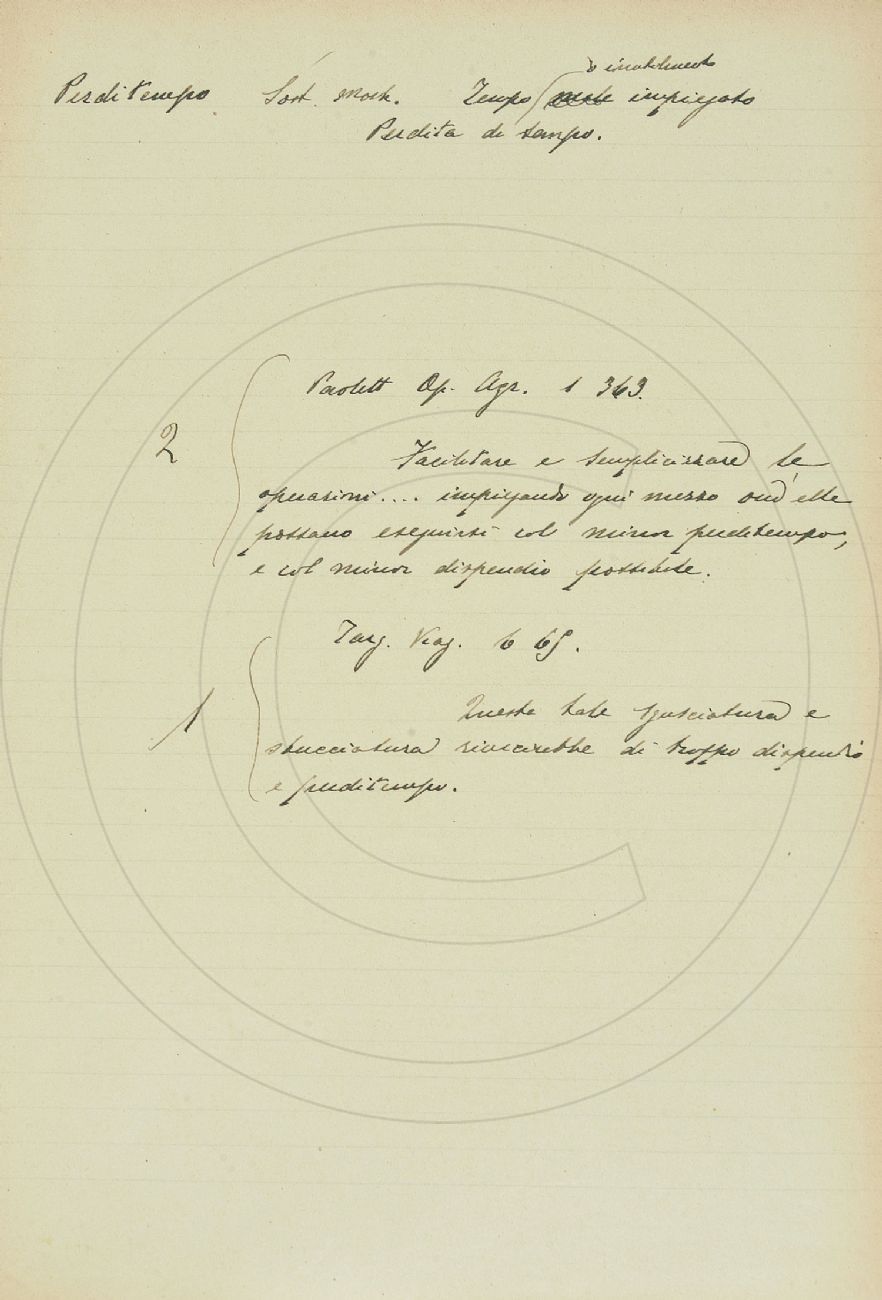 Perditempo Sost. masc. Tempo o inutilmente male impiegato
Perdita di tempo.
2
Paolett Op. Agr. 1 363.
Facilitare e semplicizzare le
operazioni.... impiegando ogni mezzo ond'elle
possano eseguirsi col minor perditempo,
e col minor dispendio possibile.
Targ. Viag. 6 65.
1
Questa tale sgusciatura e
stucciatura riuscirebbe di troppo dispendio
e perditempo.